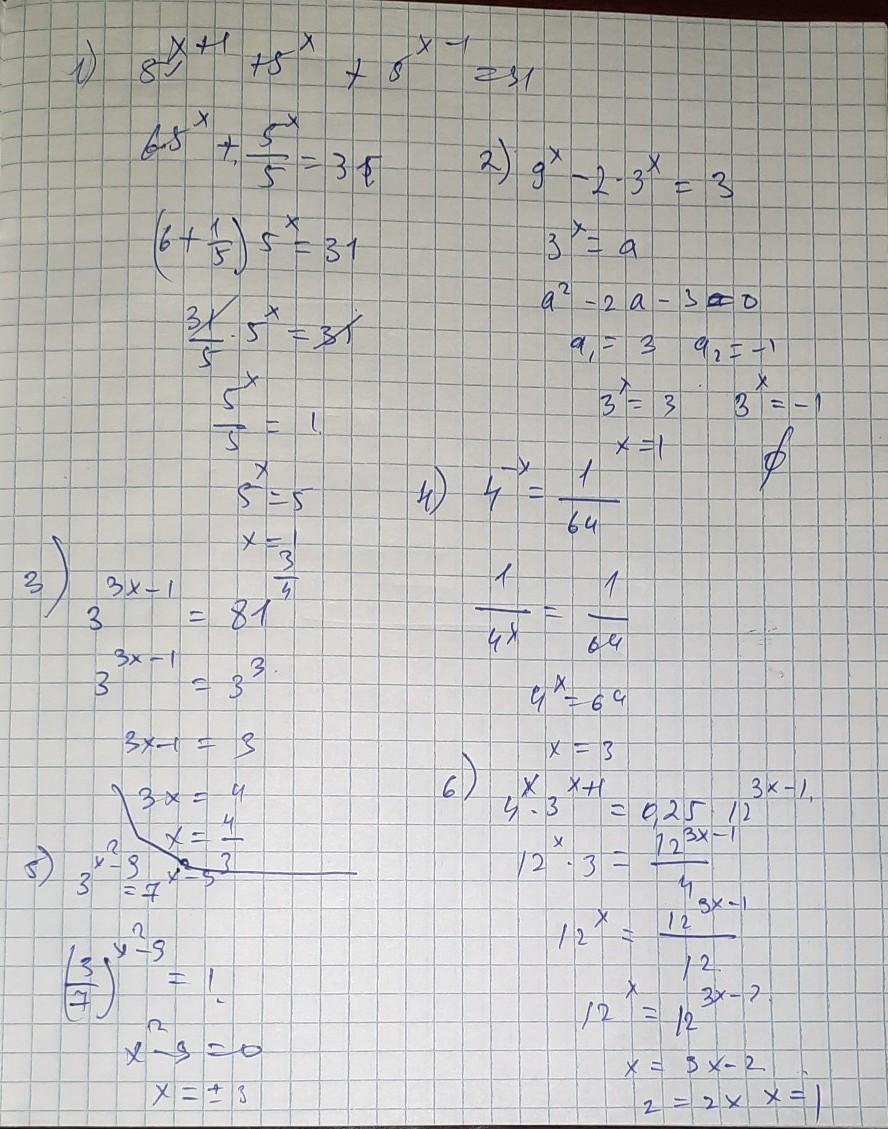 1) 5^{x+1} + 5^x + 5^{x-1} = 31
6·5^x + 5^x/5 = 31
(6 + 1/5) 5^x = 31
31/5 · 5^x = 31
5^x/5 = 1
5^x = 5
x = 1
3/4
2) 9^x - 2·3^x = 3
3^x = a
a² - 2a - 3 = 0
a₁ = 3 a₂ = -1
3^x = 3 3^x = -1
x = 1 ∅
3) 3^{3x-1} = 81
3^{3x-1} = 3^3
3x-1 = 3
3x = 4
x = 4/3
4) 4^{-x} = 1/64
1/4^x = 1/64
4^x = 64
x = 3
5) 3^{x²-9} = 7^{x²-9}
(3/7)^{x²-9} = 1
x²-9 = 0
x = ±3
6) 4^x · 3^{x+1} = 0,25 · 12^{3x-1}
12^x · 3 = 12^{3x-1}/4
12^x = 12^{3x-1}/12
12^x = 12^{3x-2}
x = 3x-2
2 = 2x x = 1